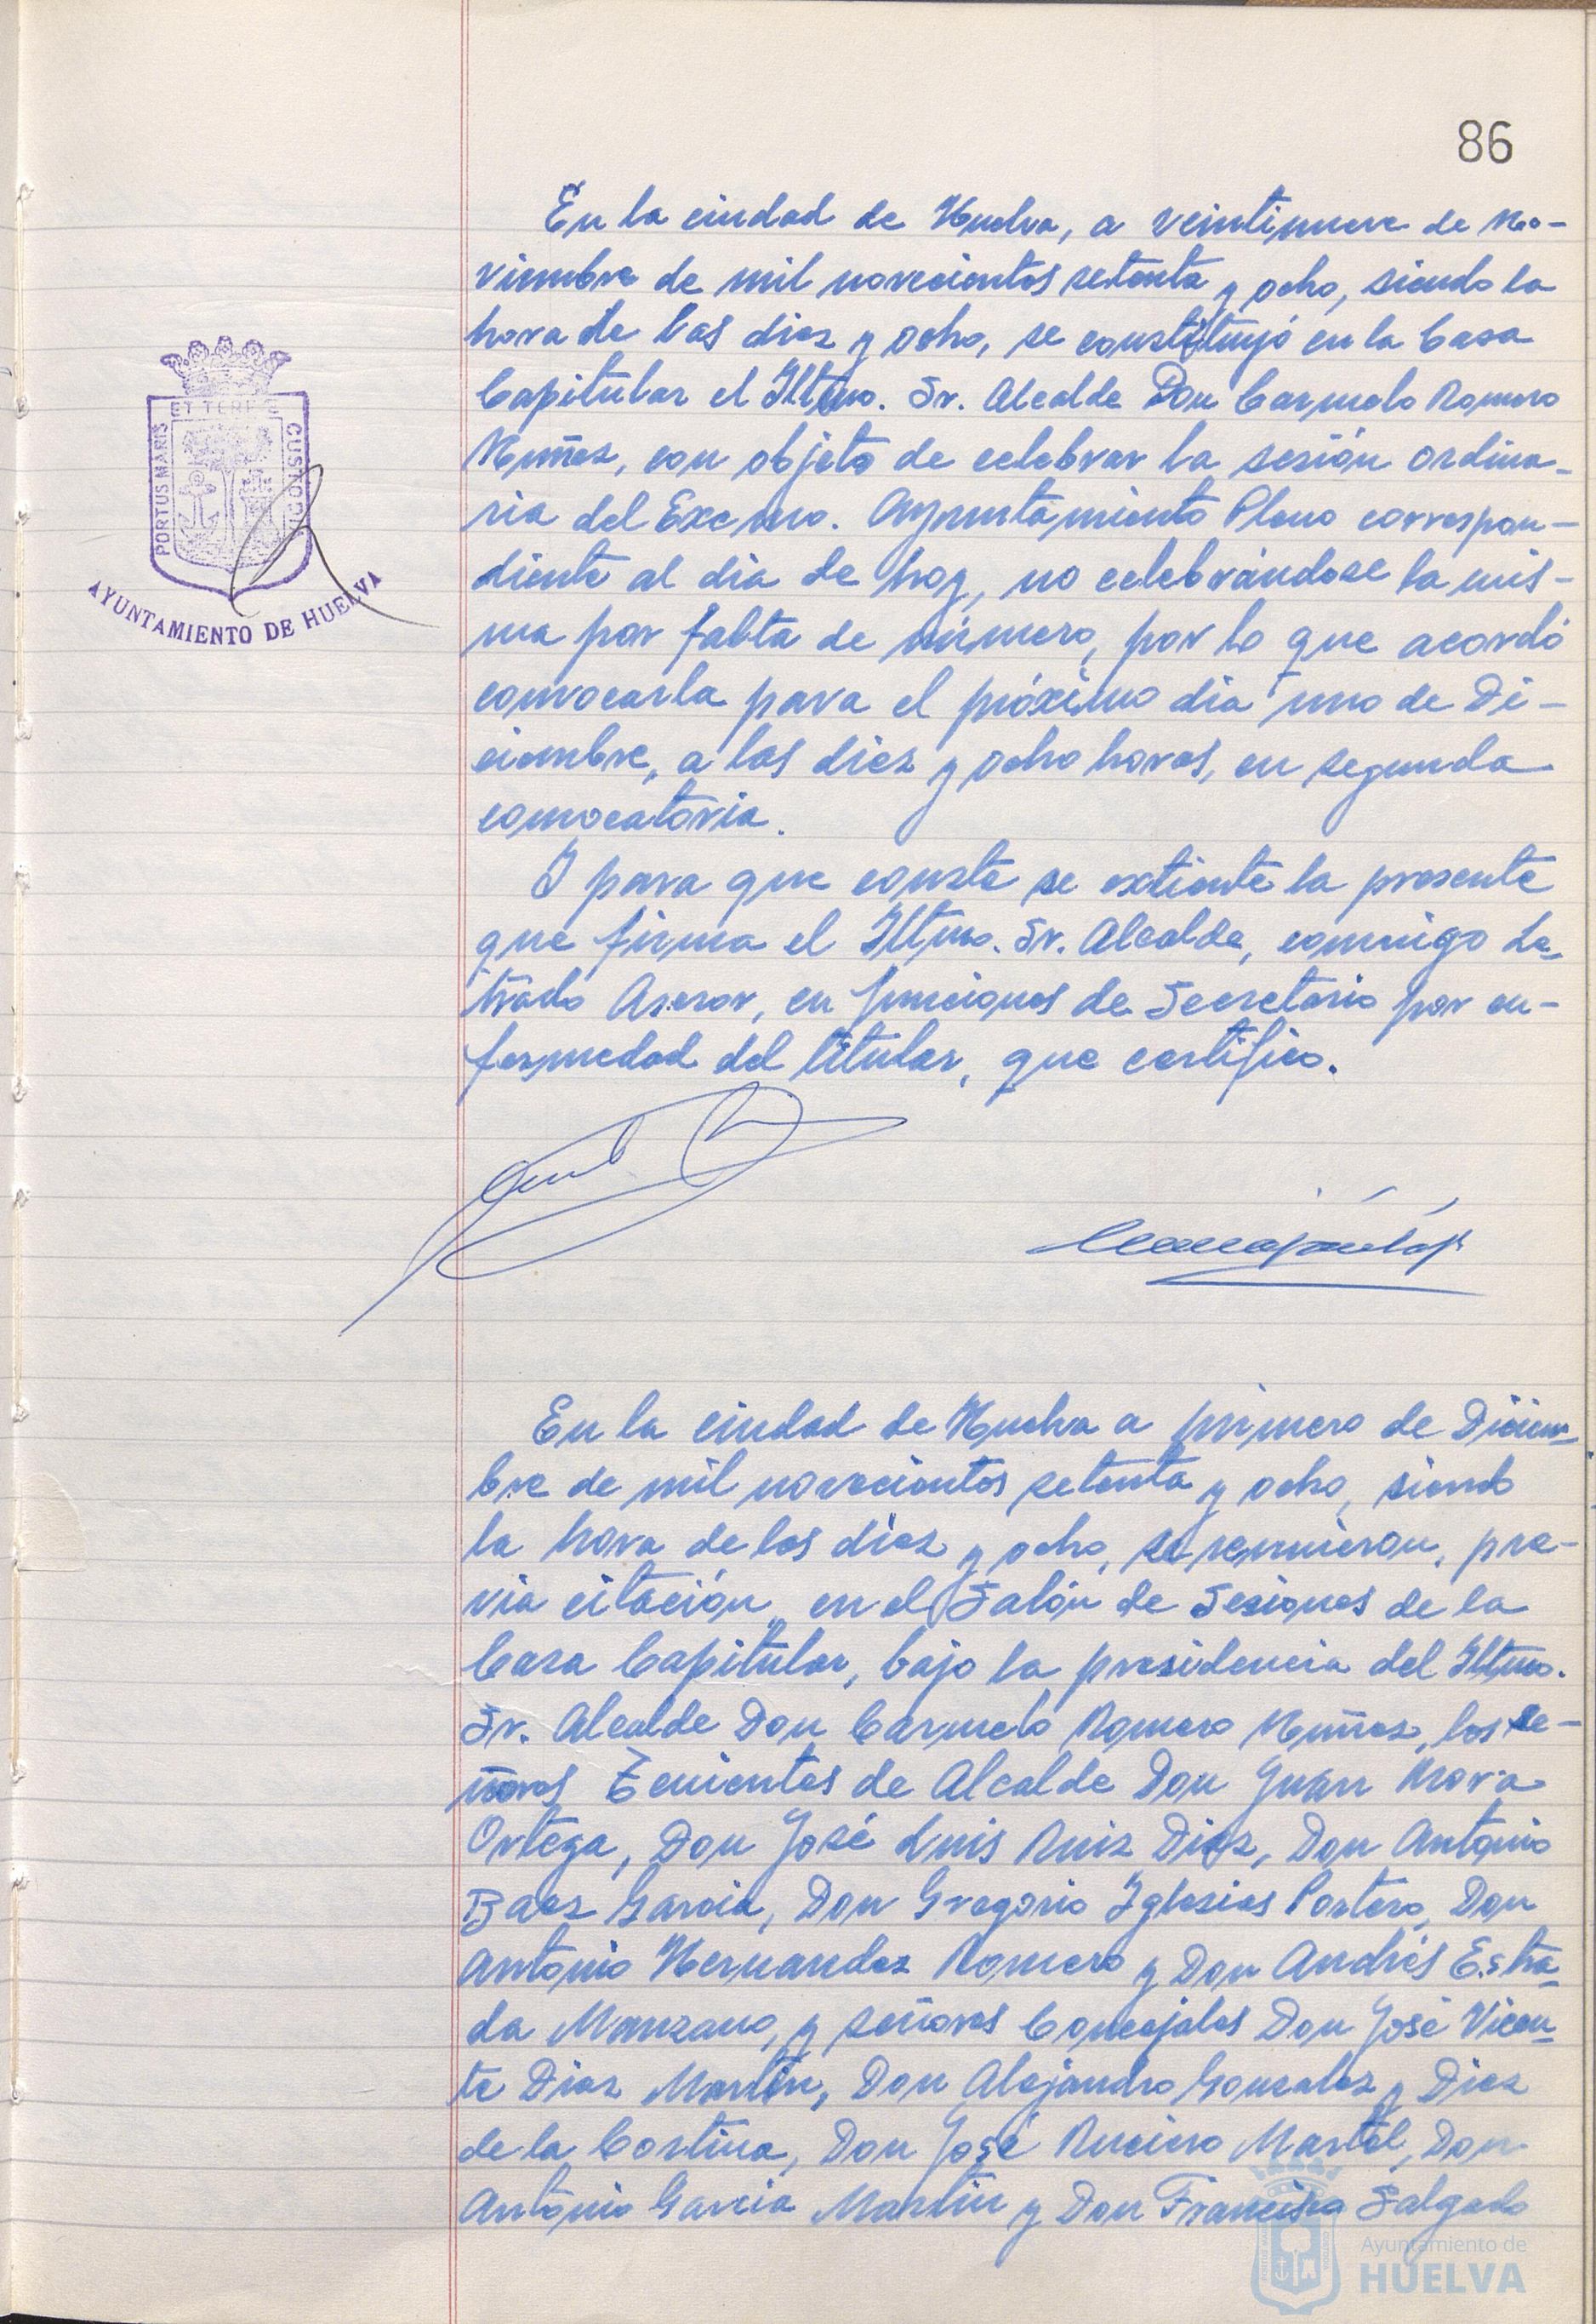 86
En la ciudad de Huelva, a veintinueve de No-
viembre de mil novecientos setenta y ocho, siendo la
hora de las diez y ocho, se constituyó en la Casa
Capitular el Iltmo. Sr. Alcalde Don Carmelo Romero
Nuñez, con objeto de celebrar la sesión ordina-
ria del Excmo. Ayuntamiento Pleno correspon-
diente al dia de hoy, no celebrándose la mis-
ma por falta de número, por lo que acordó
convocarla para el próximo dia uno de Di-
ciembre, a las diez y ocho horas, en segunda
convocatoria.
Y para que conste se extiente la presente
que firma el Iltmo. Sr. Alcalde, conmigo Le-
trado Asesor, en funciones de Secretario por en-
fermedad del titular, que certifico.
ET TERRE
PORTUS MARIS
CUSTODIA
AYUNTAMIENTO DE HUELVA
En la ciudad de Huelva a primero de Diciem-
bre de mil novecientos setenta y ocho, siendo
la hora de las diez y ocho, se reunieron, pre-
via citación, en el Salón de Sesiones de la
Casa Capitular, bajo la presidencia del Iltmo.
Sr. Alcalde Don Carmelo Romero Nuñez, los se-
ñores Tenientes de Alcalde Don Juan Mora
Ortega, Don José Luis Ruiz Diaz, Don Antonio
Baez Garcia, Don Gregorio Iglesias Portero, Don
Antonio Hernandez Romero y Don Andrés Estra-
da Manzano, y señores Concejales Don José Vicen-
te Diaz Martin, Don Alejandro Gonzalez y Diez
de la Cortina, Don José Ruciero Martel, Don
Antonio Garcia Martin y Don Francisco Salgado
Ayuntamiento de
HUELVA